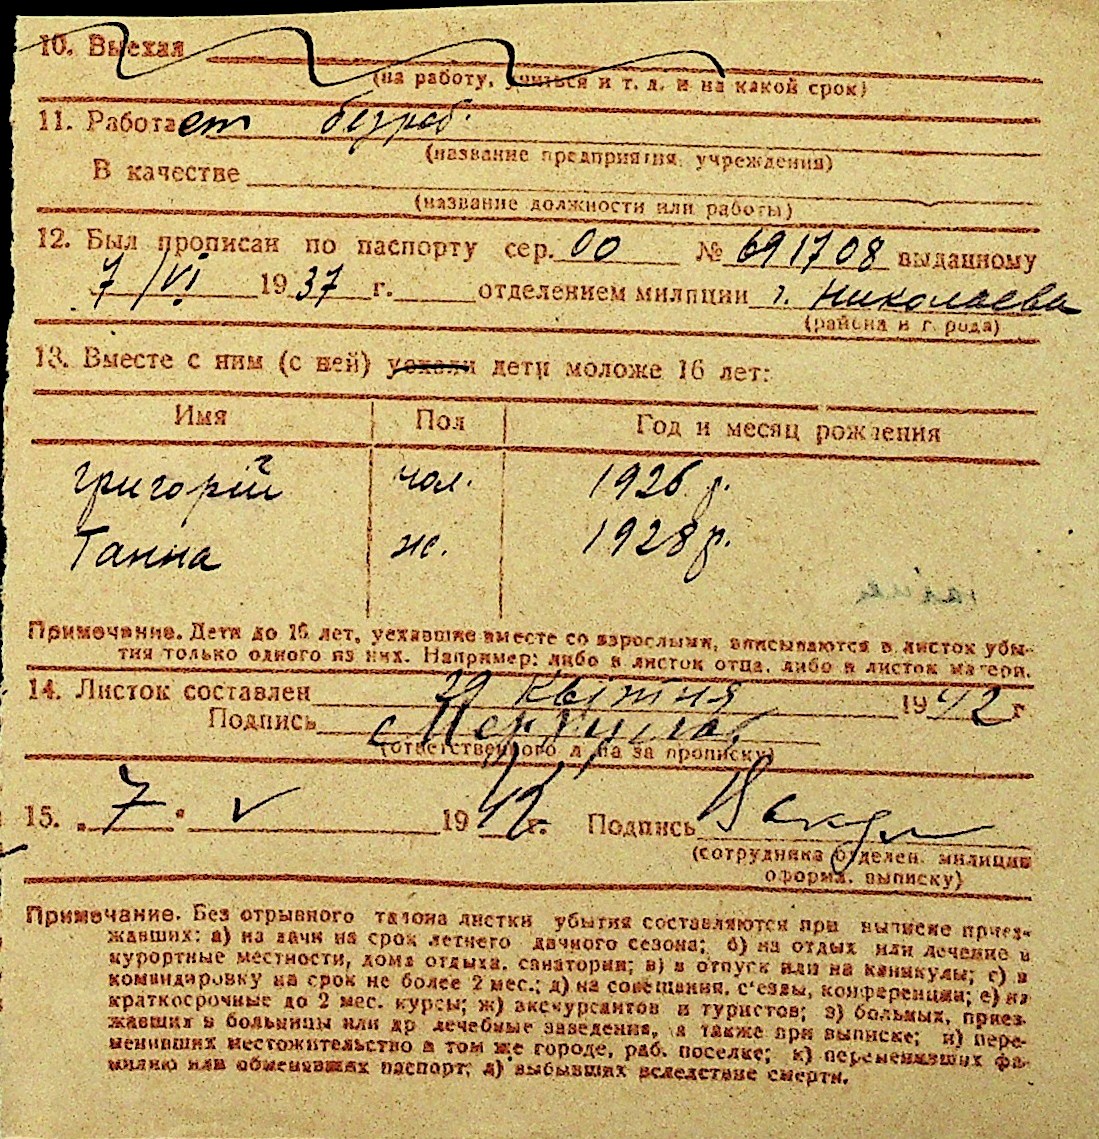 10. Выехал
(на работу, учиться и т. д. и на какой срок)
11. Работает безраб.
(название предприятия, учреждения)
В качестве
(название должности или работы)
12. Был прописан по паспорту сер. 00 № 691708 выданному
7/VI 1937 г. отделением милиции г. Николаева
(района и города)
13. Вместе с ним (с ней) уехали дети моложе 16 лет:
Имя Пол Год и месяц рождения
Григорій чол. 1926 р.
Ганна ж. 1928 р.
Примечание. Дети до 16 лет, уехавшие вместе со взрослыми, вписываются в листок убы-
тия только одного из них. Например: либо в листок отца, либо в листок матери.
14. Листок составлен 29 квітня 1942 г.
Подпись
(ответственного лица за прописку)
15. 7. V 1942 г. Подпись
(сотрудника отделен. милиции
оформ. выписку)
Примечание. Без отрывного талона листки убытия составляются при выписке приез-
жавших: а) на дачи на срок летнего дачного сезона; б) на отдых или лечение в
курортные местности, дома отдыха, санатории; в) в отпуск или на каникулы; г) в
командировку на срок не более 2 мес.; д) на совещания, с'езды, конференции; е) на
краткосрочные до 2 мес. курсы; ж) экскурсантов и туристов; з) больных, приез-
жавших в больницы или др лечебные заведения, а также при выписке; и) пере-
менивших местожительство в том же городе, раб. поселке; к) переменивших фа-
милию или обменявших паспорт; л) выбывших вследствие смерти.